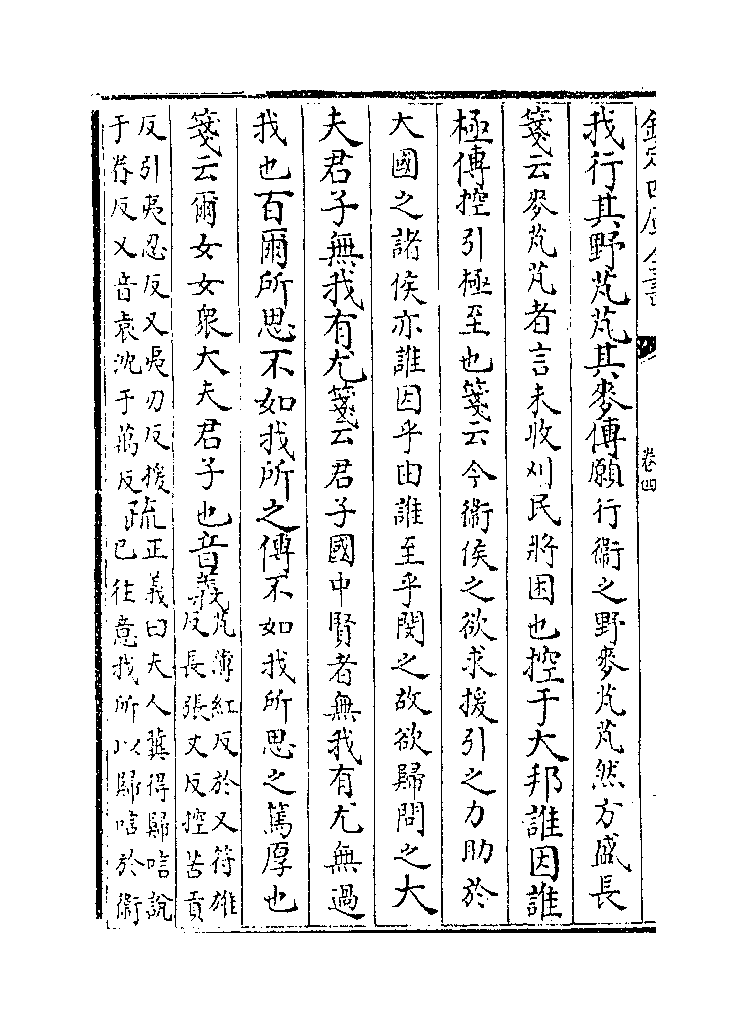 欽定四庫全書 卷四
我行其野芃芃其麥傳願行衛之野麥芃芃然方盛長
箋云麥芃芃者言未收刈民將困也控于大邦誰因誰
極傳控引極至也箋云今衛侯之欲求援引之力助於
大國之諸侯亦誰因乎由誰至乎閔之故欲歸問之大
夫君子無我有尤箋云君子國中賢者無我有尤無過
我也百爾所思不如我所之傳不如我所思之篤厚也
箋云爾女女衆大夫君子也音義
芃薄紅反於又符雄
反長張丈反控苦貢
反引夷忍反又夷刃反援
于眷反又音袁沈于萬反
疏
正義曰夫人冀得歸唁說
已往意我所以歸唁於衛